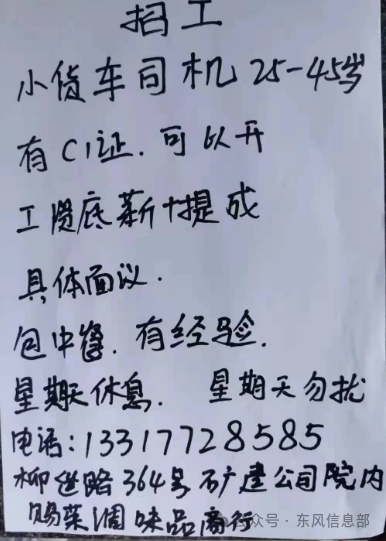 招工
小货车司机25-45岁
有C1证.可以开
工资底薪+提成
具体面议.
包中餐.有经验.
星期天休息. 星期天勿扰
电话:13317728585
柳邕路364号矿建公司院内
赐荣调味品商行
公众号·东风信息部